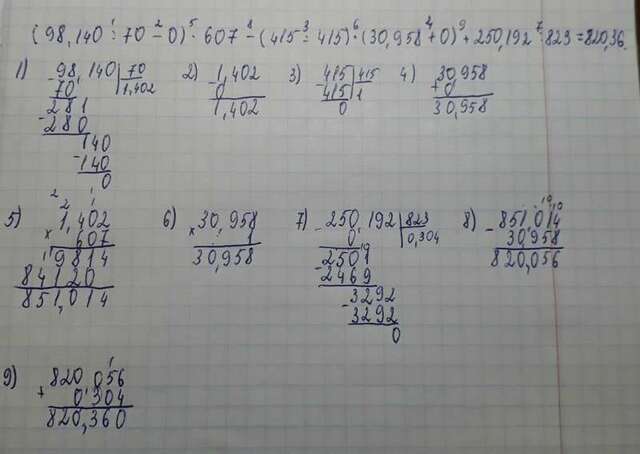 (98,140 : 70 - 0) · 607 - (415 : 415) · (30,958 + 0) + 250,192 : 823 = 820,36.
1 2 5 8 3 6 4 9 7
1) 2) 3) 4)
-98,140 | 70 -1,402 -415 | 415 30,958
70 1,402 0 415 1 + 0
281 1,402 0 30,958
-280
140
-140
0
5) 6) 7) 8)
2 2 1
1,402 × 30,958 -250,192 | 823 -851,014
× 607 1 0 0,304 30,958
9814 30,958 2501 820,056
84120 -2469
851,014 3292
-3292
0
9)
820,056
+ 0,304
820,360